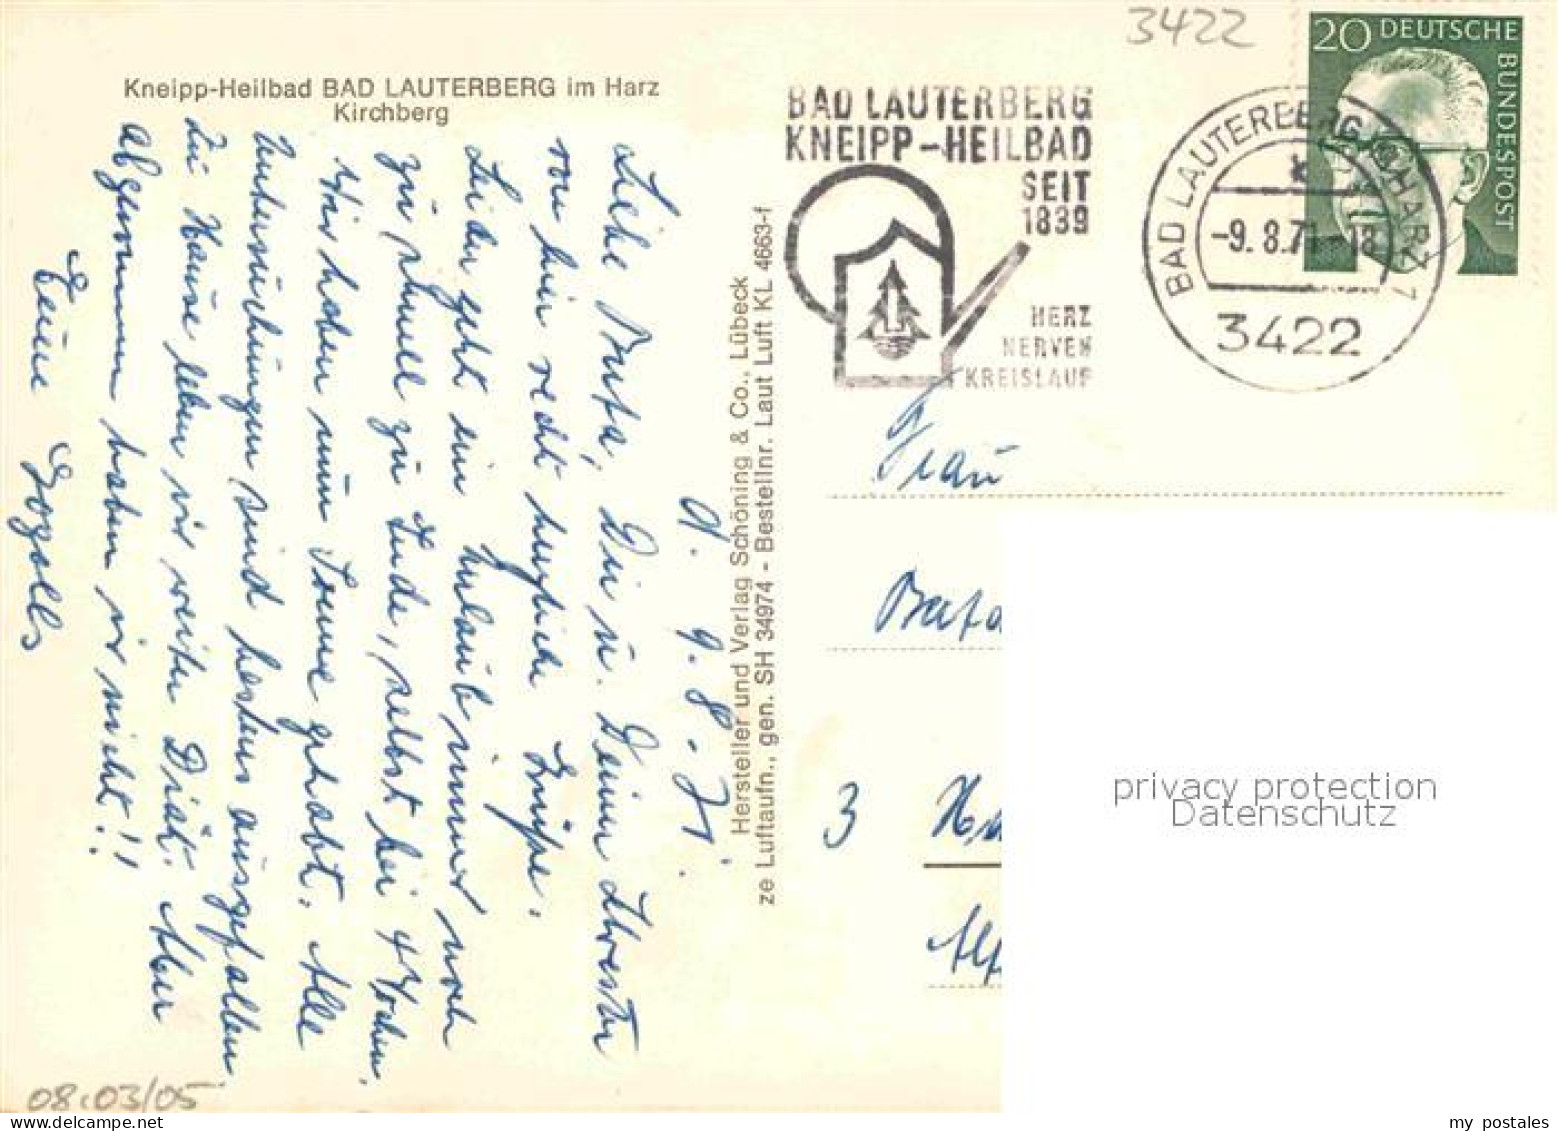 3422
20 DEUTSCHE
BUNDESPOST
Kneipp-Heilbad BAD LAUTERBERG im Harz
Kirchberg
BAD LAUTERBERG
KNEIPP-HEILBAD
SEIT
1839
HERZ
NERVEN
KREISLAUF
BAD LAUTERBERG IM HARZ 1
-9. 8.71-18
3422
Hersteller und Verlag Schöning & Co., Lübeck
ze Luftaufn., gen. SH 34974 - Bestellnr. Laut Luft KL 4663-f
d. 9.8.71.
Liebe Berta, Dir u. Deiner Schwester
von hier recht herzliche Grüße.
Leider geht ein Urlaub immer noch
zu schnell zu Ende, selbst bei 4 Wochen.
Wir haben nun Sonne gehabt. Alle
Untersuchungen sind bestens ausgefallen.
Zu Hause leben wir weiter Diät. Aber
abgenommen haben wir nicht!!
Deine
Frau
3
08.03/05
privacy protection
Datenschutz
my postales